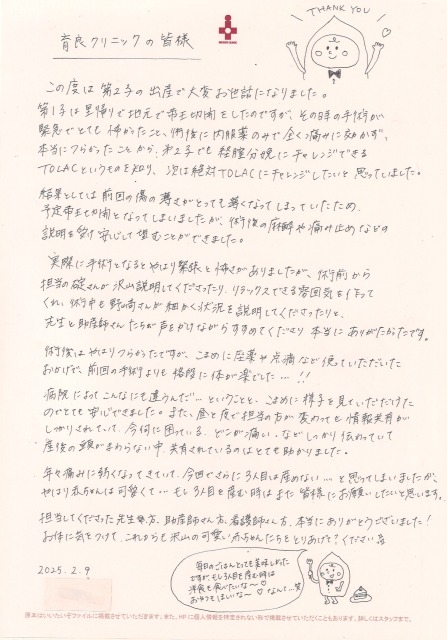 THANK YOU
育良クリニックの皆様
この度は第2子の出産で大変お世話になりました。
第1子は里帰りで地元で帝王切開をしたのですが、その日の手術が
緊急でとても怖かったこと、術後に内服薬のみで全く痛みに効かず、
本当につらかったことから、第2子でも経腟分娩にチャレンジできる
TOLACというものを知り、次は絶対TOLACにチャレンジしたいと思っていました。
結果としては前回の傷の薄さがとっても薄くなってしまっていたため、
予定帝王切開となってしまいましたが、術後の麻酔や痛み止めなどの
説明を受け安心して望むことができました。
実際に手術となるとやはり緊張と怖さがありましたが、術前から
担当の碇さんが沢山説明してくださったり、リラックスできる雰囲気を作って
くれ、術中も野崎さんが細かく状況を説明してくださったりと、
先生と助産師さんたちが声をかけながらすすめてくださり本当にありがたかったです。
術後はやはりつらかったですが、こまめに座薬や点滴など使っていただいた
おかげで、前回の手術よりも格段に体が楽でした…!!
病院によってこんなにも違うんだ…ということと、こまめに様子を見ていただけた
のがとても安心できました。また、昼と夜で担当の方が変わっても情報共有が
しっかりされていて、今何に困っている、どこが痛い、などしっかり伝わっていて
産後の頭がまわらない中、共有されているのはとても助かりました。
年々痛みに弱くなってきていて、今回でさらに3人目は産めない…と思ってしまいましたが、
やはり赤ちゃんは可愛くて…もし3人目を産む時はまた皆様にお願いしたいと思います。
担当してくださった先生方、助産師さん方、看護師さん方、本当にありがとうございました!
お体に気をつけて、これからも沢山の可愛い赤ちゃんたちをとりあげてください
2025.2.9
毎日のごはんとっても美味しかった
ですが、もし3人目を産む時は
洋食も食べたいな〜♡
おやつもほしいな〜♡なんて…笑
原本はいいたいぞファイルに掲載させていただきます。また、HPに個人情報を特定されない形で掲載させていただくこともあります。詳しくはスタッフまで。